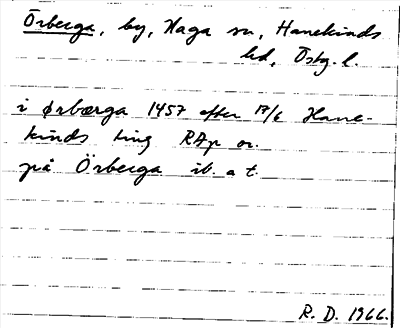 Örberga, by, Haga sn, Hanekinds
hd, Östg. l.
i ørbærga 1457 efter 17/6 Hane-
kinds ting RAp or.
på Örberga ib. a t.
R. D. 1966.